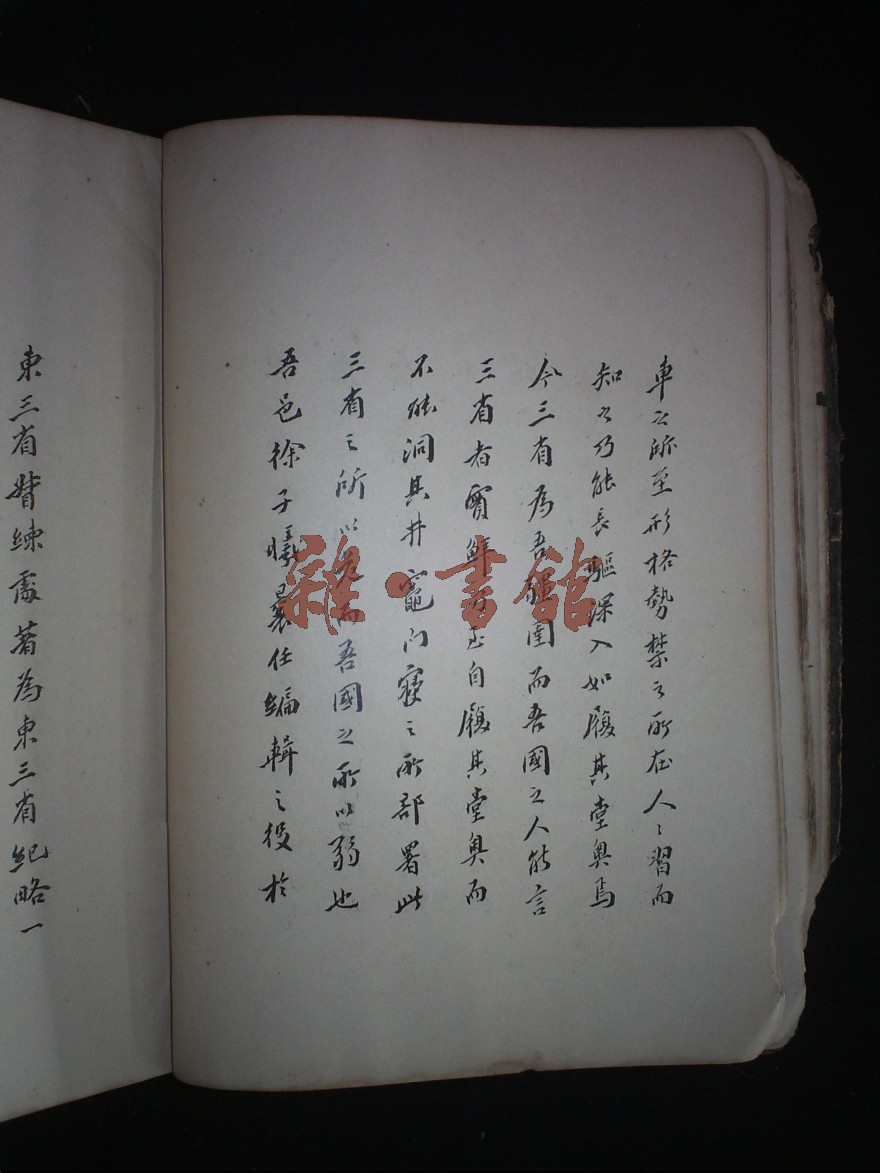 車之所至形格勢禁之所在人々習而
知之乃能長驅深入如履其堂奧焉
今三省為吾疆圉而吾國之人能言
三省者實鮮乃至自履其堂奧而
不能洞其井竈門寢之所部署此
三省之所以危而吾國之所以弱也
吾邑徐子曦曩任編輯之役於
東三省督練處著為東三省紀略一
雜·書館